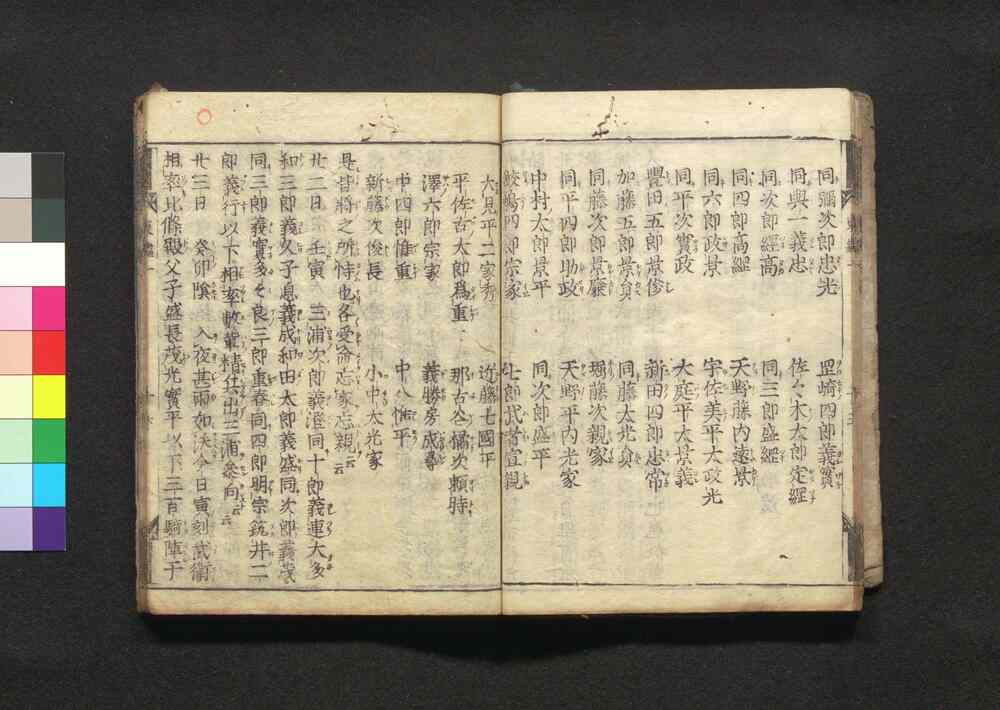 同彌次郎忠光 罡﨑四郎義實
同與一義忠 佐々木太郎定經
同次郎經高 同三郎盛經
同四郎高經 天野藤内遠景
同六郎政景 宇佐美平太政光
同平次實政 大庭平太景義
豐田五郎景俊 新田四郎忠常
加藤五郎景貟 同藤太光貟
同藤次郎景廉 堀藤次親家
同平四郎助政 天野平内光家
中村太郎景平 同次郎盛平
鮫嶋四郎宗家 七郎武者宣親
大見平二家秀 近藤七國平
平佐古太郎爲重 那古谷橘次頼時
澤六郎宗家 義勝房成尋
中四郎惟重 中八惟平
新藤次俊長 小中太光家
是皆將之所恃也各受命忘家忘親云云
廿二日 壬寅 三浦次郎義澄同十郎義連大多
和三郎義久子息義成和田太郎義盛同次郎義茂
同三郎義實多々良三郎重春同四郎明宗筑井二
郎義行以下相率數輩精兵出三浦參向云云
廿三日 癸卯陰 入夜甚雨如沃今日寅刻武衞
相率北條殿父子盛長茂光實平以下三百騎陣于